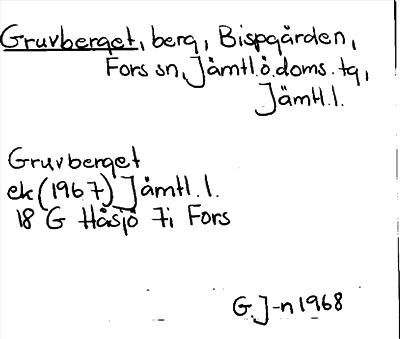 Gruvberget, berg, Bispgården,
Fors sn, Jämtl.ö.doms.tg,
Jämtl.l.
Gruvberget
ek (1967) Jämtl.l.
18 G Håsjö 7i Fors
G.J-n 1968